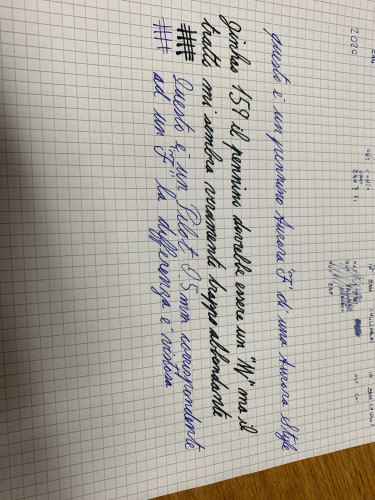 questo è un pennino Aurora "F" di una Aurora Style
Jinhao 159 il pennino dovrebbe essere un "M" ma il
tratto mi sembra veramente troppo abbondante
Questo è un Pilot 05 mm corrispondente
ad un "F" la differenza è vistosa
2020